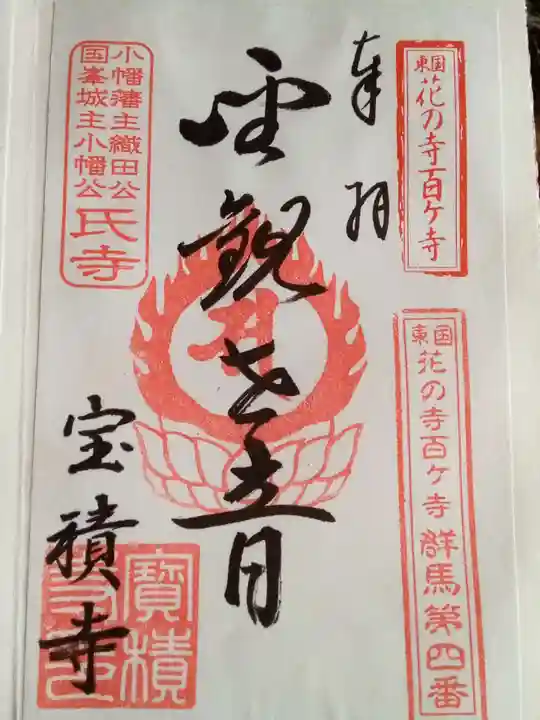 東国花の寺百ケ寺
東国花の寺百ケ寺 群馬第四番
奉拝
聖観世音
宝積寺
小幡藩主織田公
国峯城主小幡公
氏寺
寶積